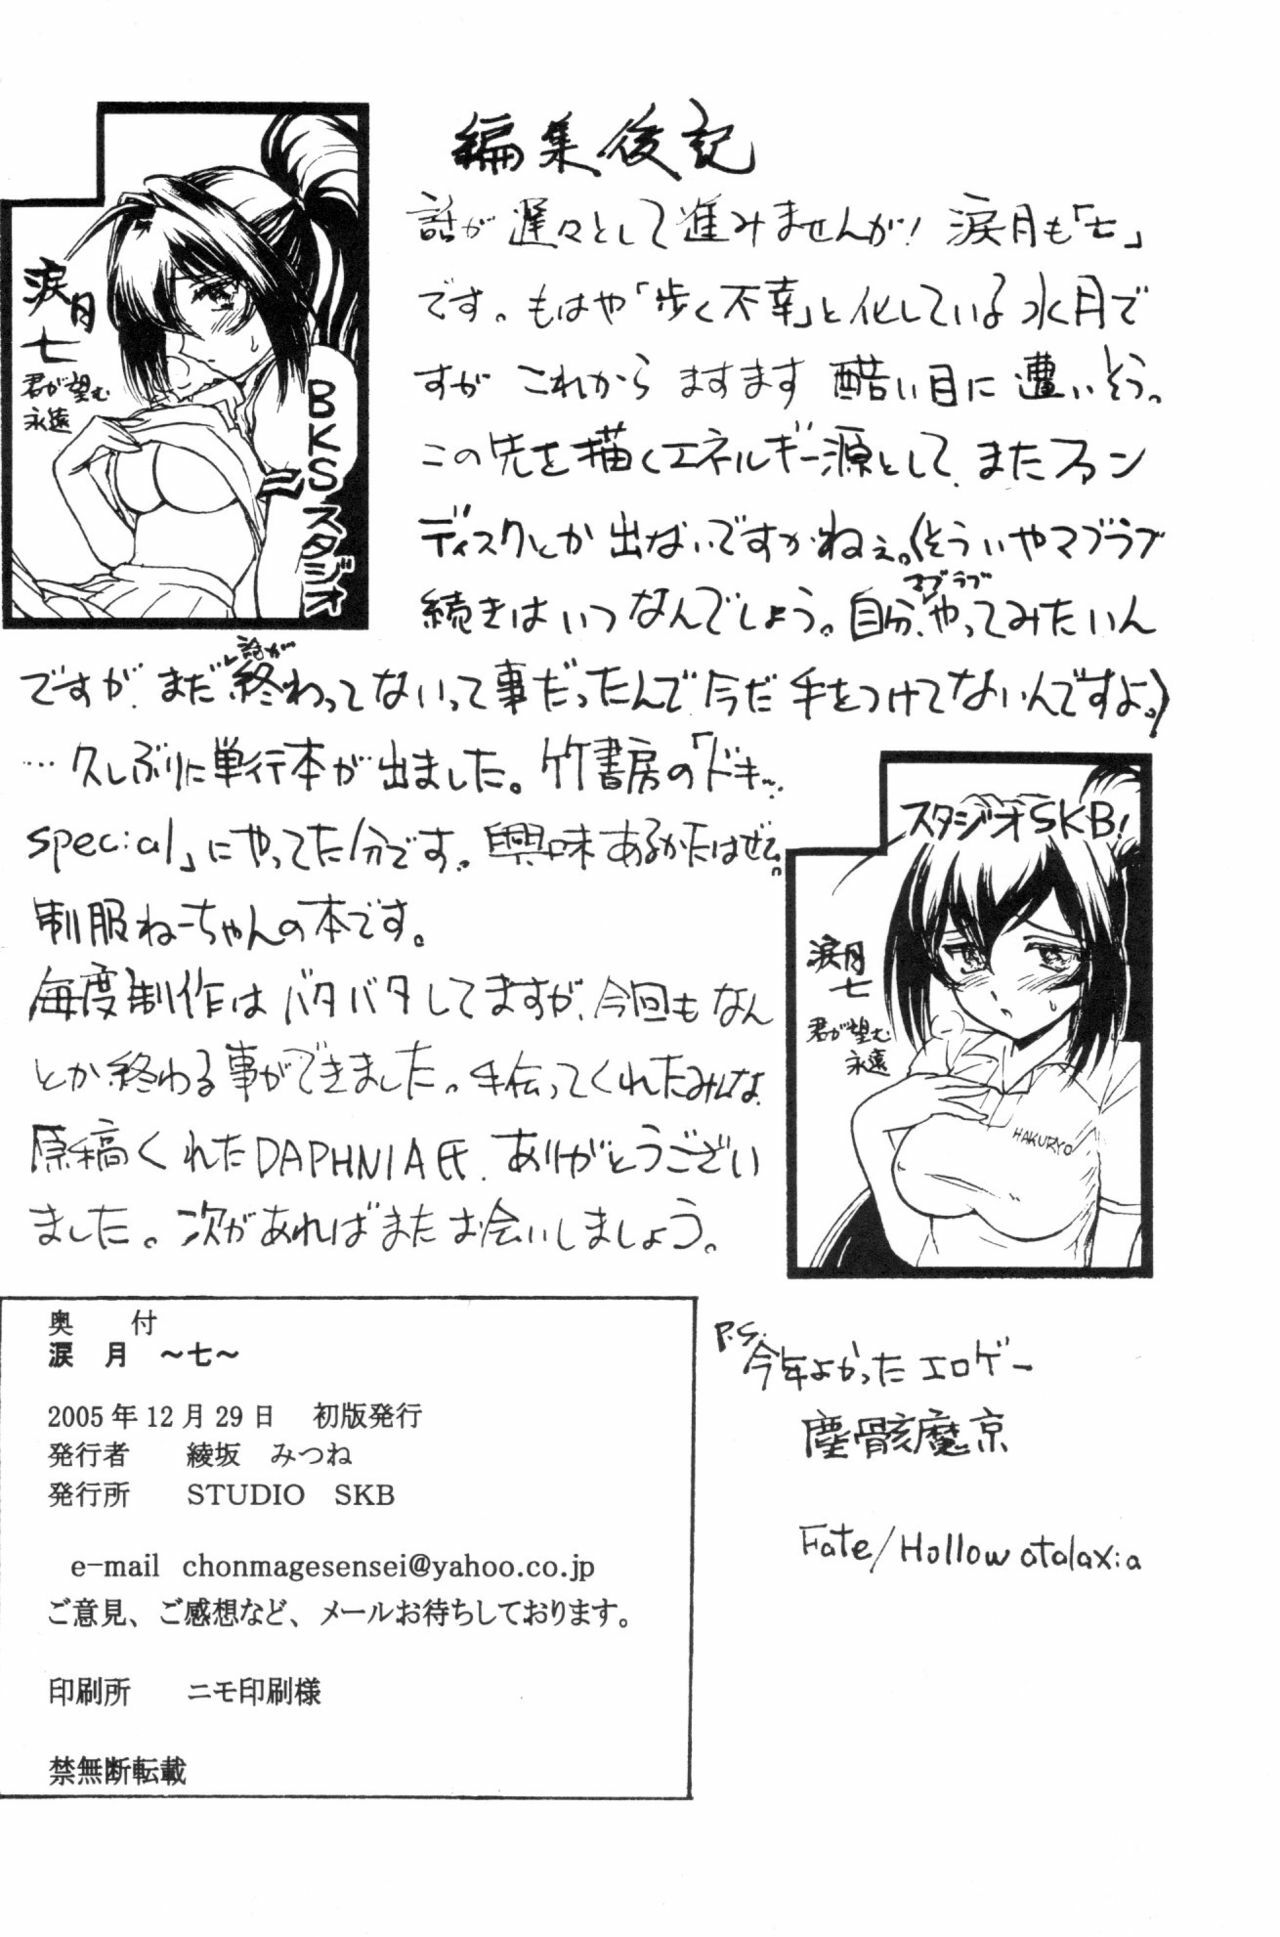 編集後記
話が遅々として進みませんが！涙月も「七」
です。もはや「歩く不幸」と化している水月で
すが これから ますます 酷い目に 遭いそう。
この先を描くエネルギー源として、またファン
ディスクとか 出ないですかねぇ。（そういやマブラブ
続きは いつ なんでしょう。自分、やってみたいん
マブラブ
ですが、まだ終わってないって事だったんで今だ 手をつけてないんですよ。）
話が
…久しぶりに単行本が出ました。竹書房の「ドキッ
special」にやってた分です。興味あるかたはぜひ。
制服ねーちゃんの本です。
毎度制作は バタバタしてますが、今回も なん
とか終わる事ができました。手伝ってくれたみんな、
原稿くれたDAPHNIA氏、ありがとうござい
ました。次があればまたお会いしましょう。
涙月
七
君が望む
永遠
BKSスタジオ
スタジオSKB！
涙月
七
君が望む
永遠
HAKURYO
奥　付
涙　月　～七～
2005年12月29日　初版発行
発行者　綾坂　みつね
発行所　STUDIO　SKB
e-mail　chonmagesensei@yahoo.co.jp
ご意見、ご感想など、メールお待ちしております。
印刷所　ニモ印刷様
禁無断転載
P.S.
今年よかった エロゲー
塵骸魔京
Fate/Hollow atalaxia